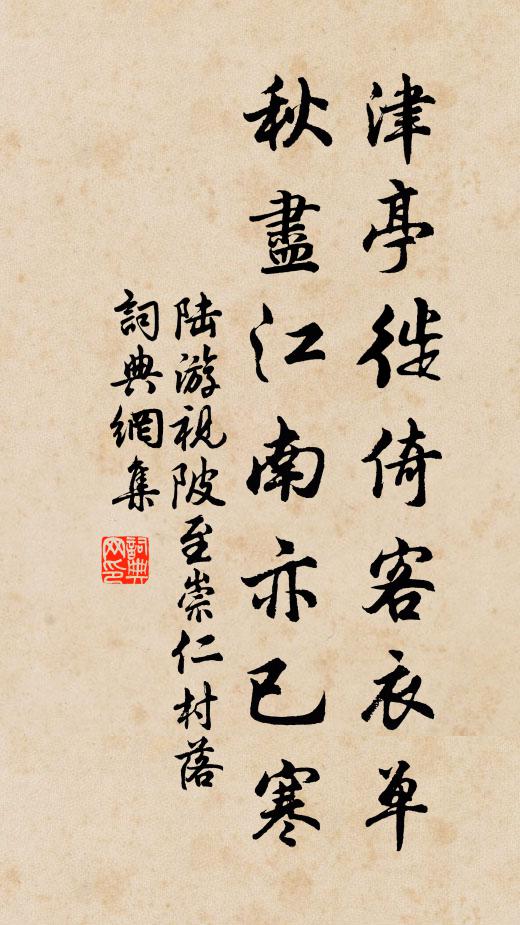 津亭徙倚客衣单
秋盡江南亦已寒
陆游視陂至崇仁村落
詞典網集
詞典网印